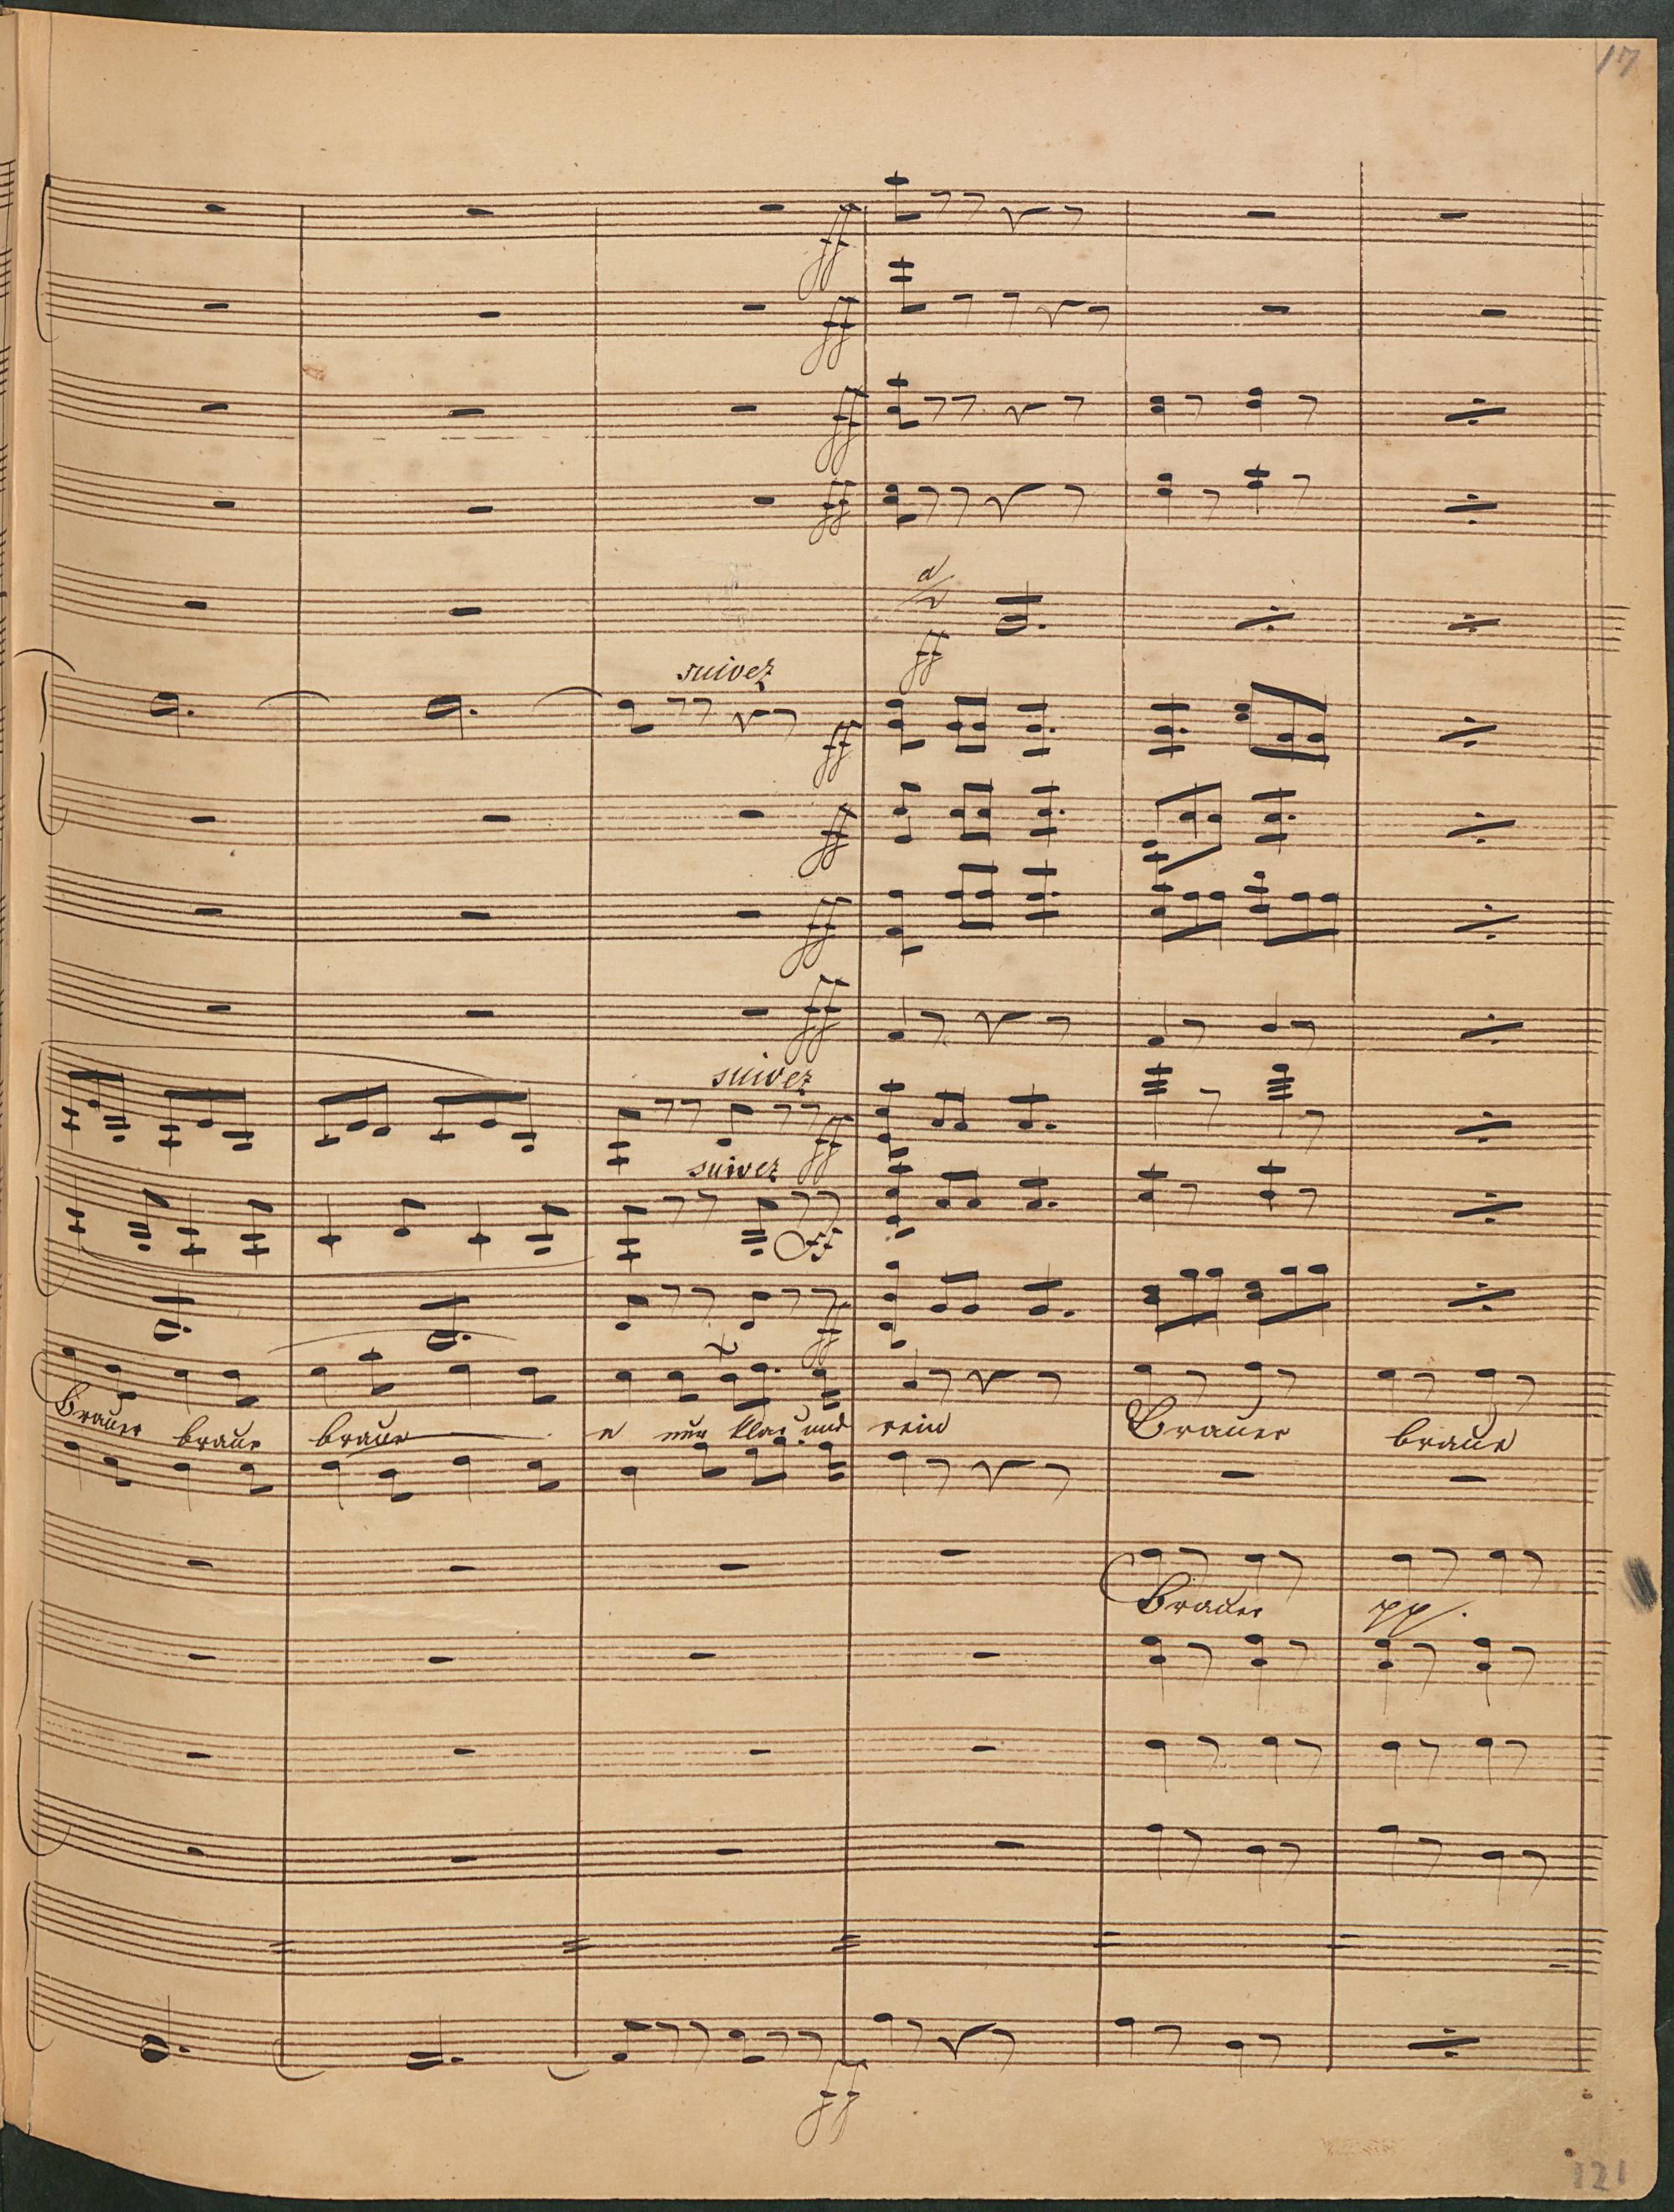 17
ff
ff
ff
ff
a/2
ff
suivez
ff
ff
ff
ff
suivez
ff
suivez
ff
ff
Brauer braue braue e nur klar und rein Brauer braue
Brauer
ff
121